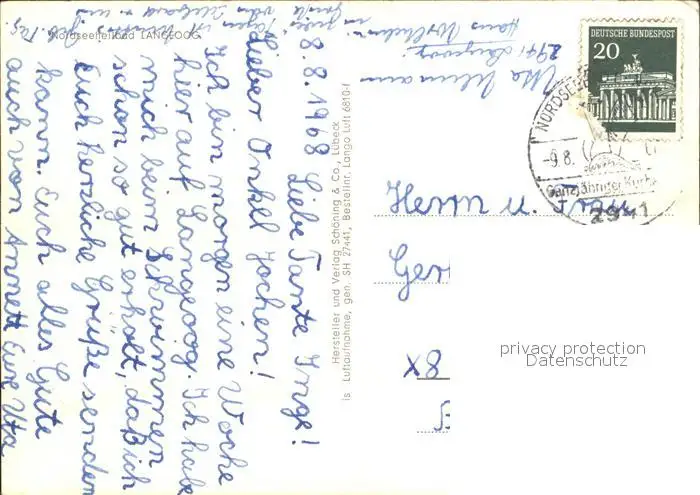 Nordseeheilbad LANGEOOG
8.8.1968 Liebe Tante Inge!
Lieber Onkel Jochen!
Ich bin morgen eine Woche
hier auf Langeoog. Ich habe
mich beim Schwimmen
schon so gut erholt, daß ich
Euch herzliche Grüße senden
kann. Euch alles Gute
auch von Annett Eure Uta
Hersteller und Verlag Schöning & Co., Lübeck
Luftaufnahme, gen. SH 27441, Bestellnr. Lango Luft 6810-f
2941 Langeoog
DEUTSCHE BUNDESPOST
20
NORDSEE
-9.8.
Ganzjährige Kur
2941
Herrn u. Frau
Ger
x8
privacy protection
Datenschutz